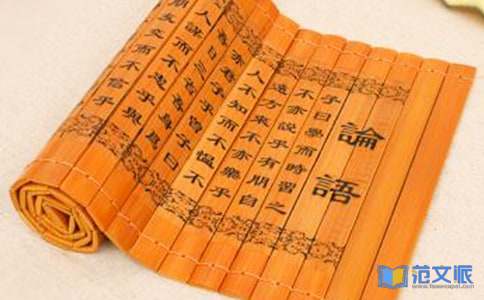 論語
子曰學而時習之
不亦說乎有朋自
遠方來不亦樂乎
人不知而不慍不
亦君子乎曾子曰
吾日三省吾身為
人謀而不忠乎與
朋友交而不信乎
范文派